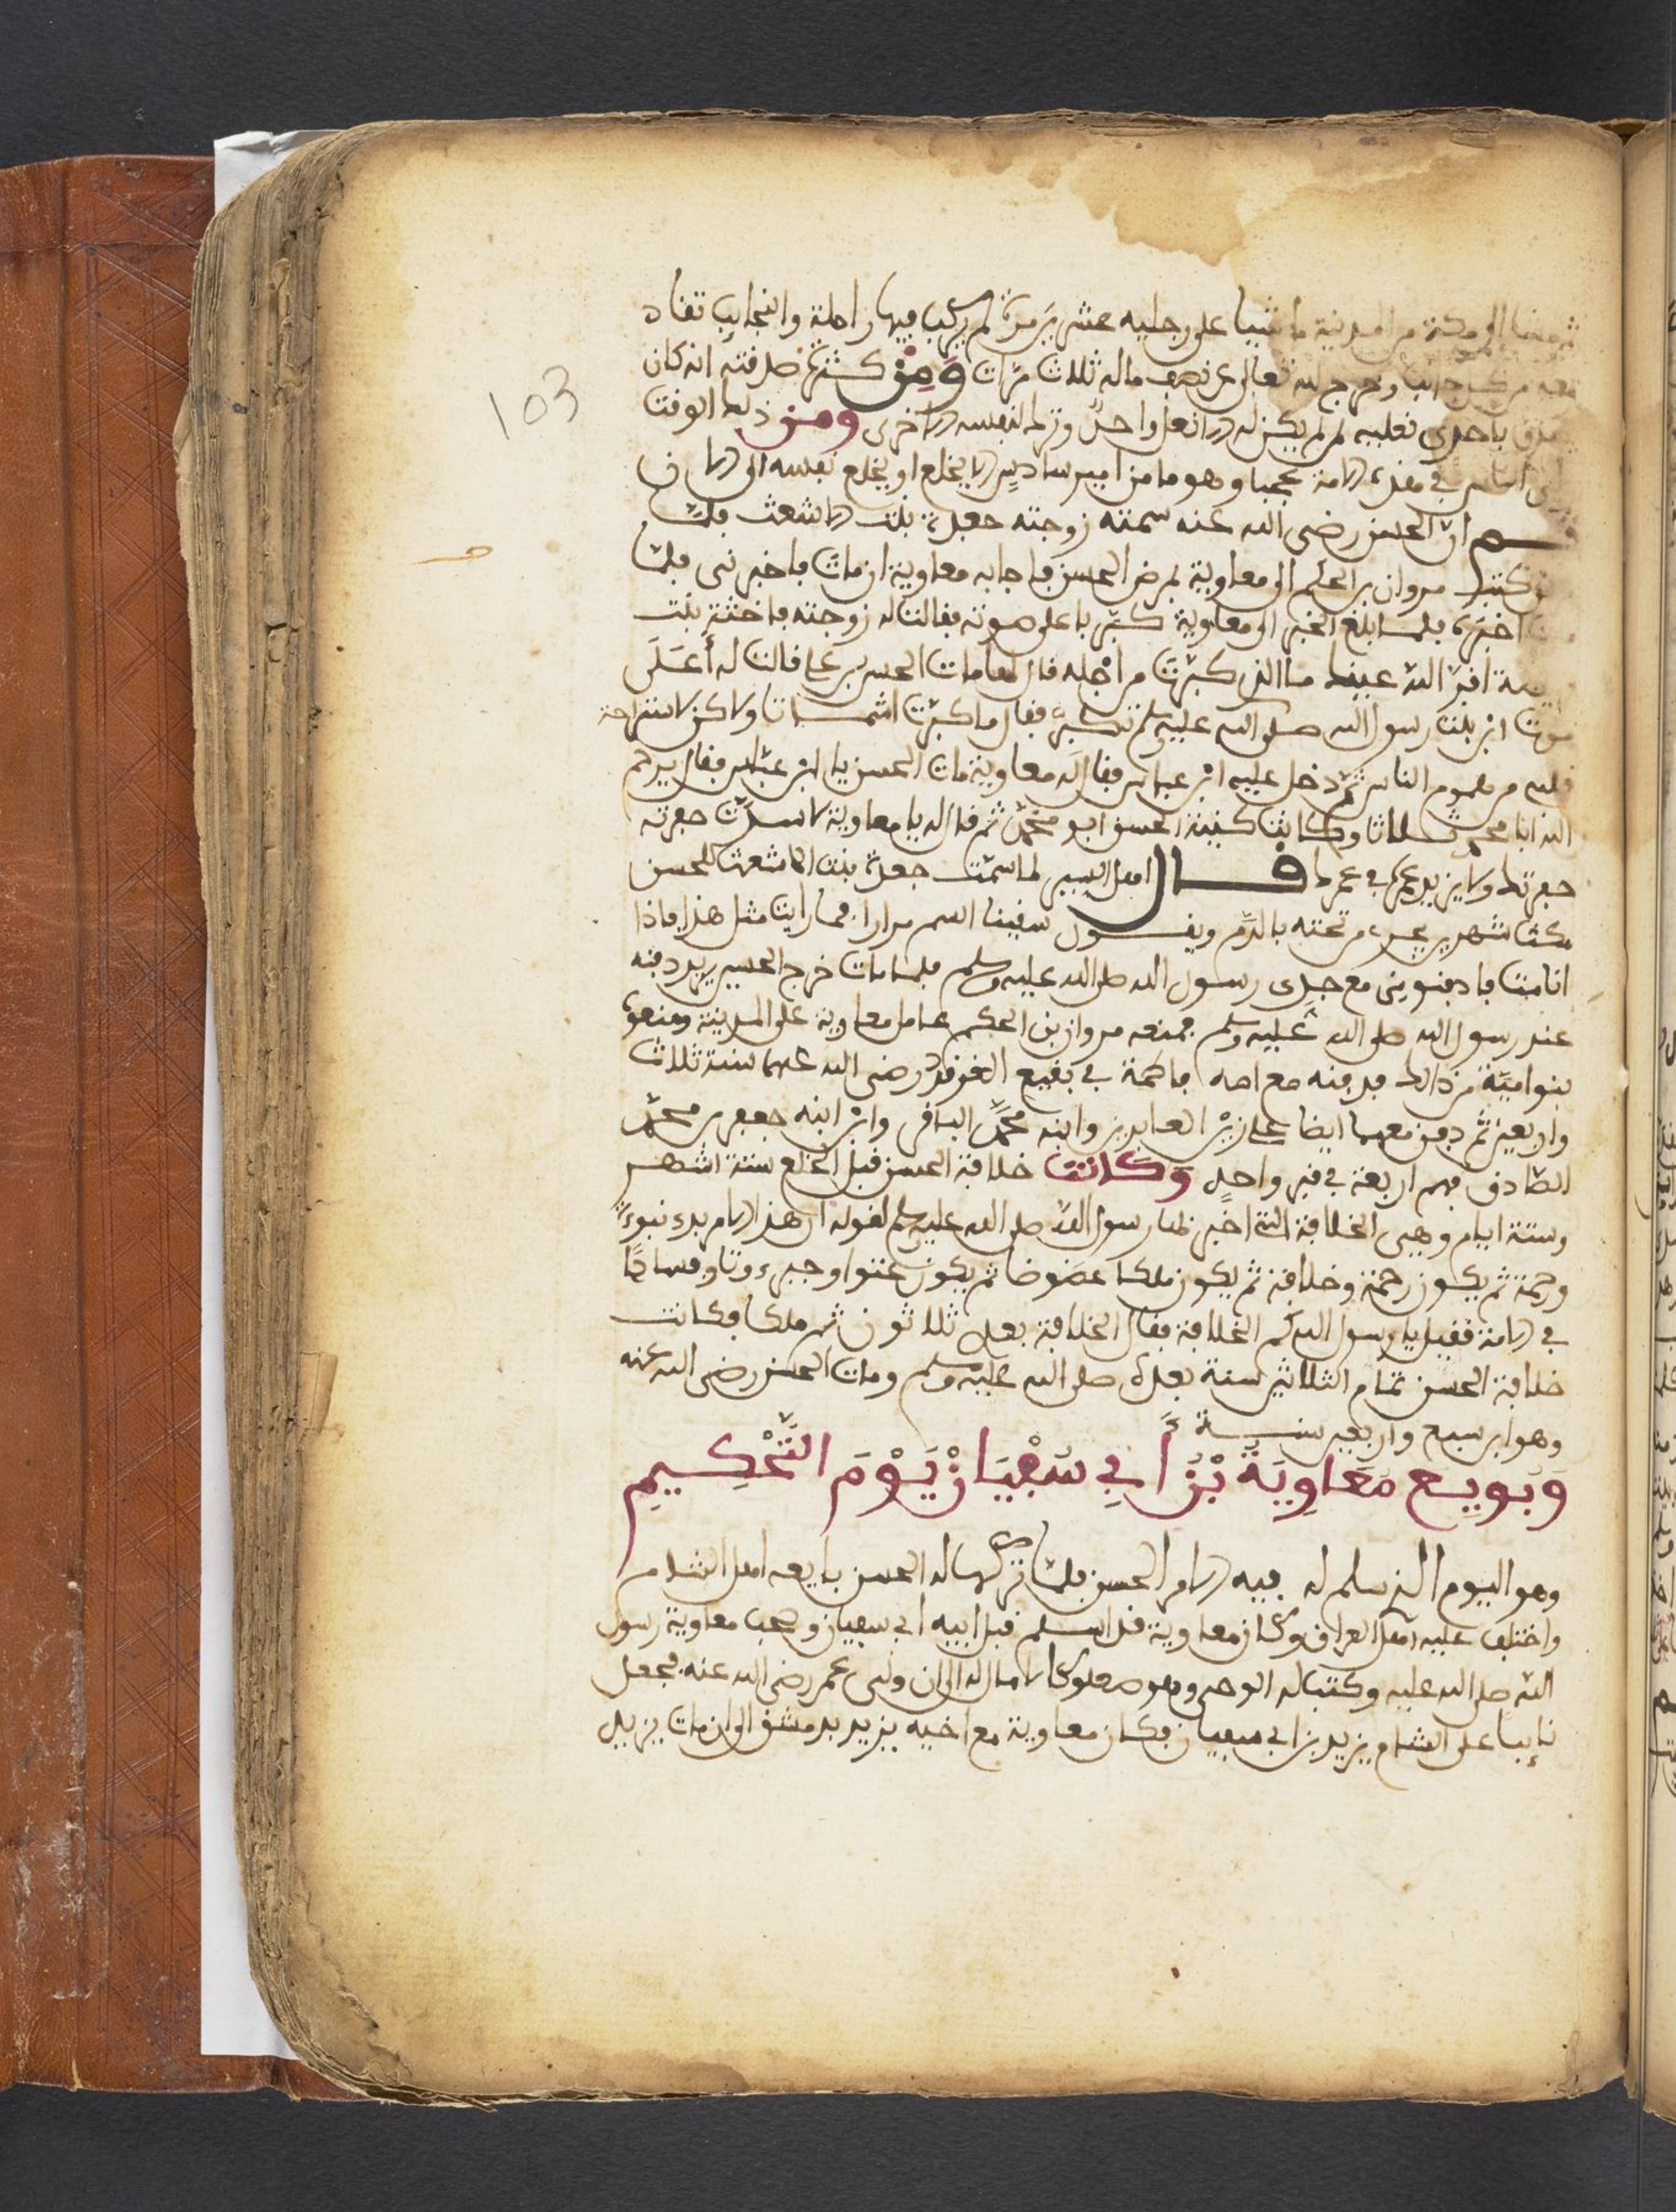 الى مكة من المدينة ماشيا على رجليه عشرين مرة لم يركب فيها راحلة والنجايب تفاد
معه وخرج لله تعالى عن نصف ماله ثلاث مرّات وَمِنْ كثرة صدفته انه كان
باحدى نعليه لم يكن له الا نعل واحد وترك لنفسه الاخرى ومن ذلك الوفت
في هذه الامة عجبا وهو ما من امير سادس الا يخلع او يخلع نفسه الى الان
ان الحسن رضى الله عنه سمته زوجته جعدة بنت الاشعث فلما
كتب مروان بن الحكم الى معاوية بمرض الحسن فاجابه معاوية ان مات فاخبرنى فلما
اخبره فلما بلغ الخبر الى معاوية كبّر باعلى صوته فقالت له زوجته فاختة بنت
اقر الله عينك ما الذى كبّرت من اجله قال لها مات الحسن بن على فالت له أعَلَى
موت ابن بنت رسول الله صلى الله عليه وسلم تكبّر فقال ما كبّرت اشماتا ولاكن لاستراحة
قلبى من هموم الناس ثم دخل عليه ابن عباس فقال له معاوية مات الحسن يا ابن عبّاس فقال يرحم
الله ابا محمد ثلاثا وكانت كنية الحسن ابو محمّد ثم قال له يا معاوية لا سدّت حفرته
حفرتك ولا يزيد عمره في عمرك فـــال اهل السير لما سمّت جعدة بنت الاشعث الحسن
مكث شهرين يجرى من تحته بالدّم ويفـــول سفينا السم مرارا فما راينا مثل هذا فاذا
انا مت فادفنونى مع جدى رسول الله صلى الله عليه وسلم فلما مات خرج الحسين يريد دفنه
عند رسول الله صلى الله عليه وسلم فمنعه مروان بن الحكم عامل معاوية على المدينة ومنعوه
بنو اميّة من ذالك فدفنه مع امه فاطمة في بفيع الغرفد رضى الله عنهما سنة ثلاث
واربعين ثم دفن معهما ايضا على زين العابدين وابنه محمّد البافر وابن ابنه جعفر بن محمّد
الصّادف فهم اربعة في فبر واحدٍ وَكانت خلافة الحسن فبل الخلع ستة اشهـــر
وستة ايام وهى الخلافة التى اخبر بها رسول الله صلى الله عليه وسلم لفوله ان هذا الامر بدء نبوءة
ورحمة ثم يكون رحمة وخلافة ثم يكون ملكا عضوضا ثم يكون عتوا وجبروتا وفسادًا
في الامة ففيل يا رسول الله كم الخلافة ففال الخلافة بعدى ثلاثون ثم ملكا فكانت
خلافة الحسن تمام الثلاثين سنة بعده صلى الله عليه وسلم ومات الحسن رضى الله عنه
وهو ابن سبع واربعين سنـــة
وَبويع مَعَاوِيَة بْن أبِي سَفْيَان يَوْمَ التَّحْكِيمِ
وهو اليوم الذى سلم له فيه الامر الحسن فلما تركها له الحسن بايعه اهل الشام
واختلف عليه اهل العراف وكان معاوية فد اسلم فبل ابيه ابى سفيان وصحب معاوية رسول
الله صلى الله عليه وكتب له الوحى وهو صعلوكا لا مال له الى ان ولى عمر رضى الله عنه فجعل
نايبا على الشام يزيد بن ابى سفيان فكان معاوية مع اخيه يزيد بدمشق الى ان مات يزيد
103